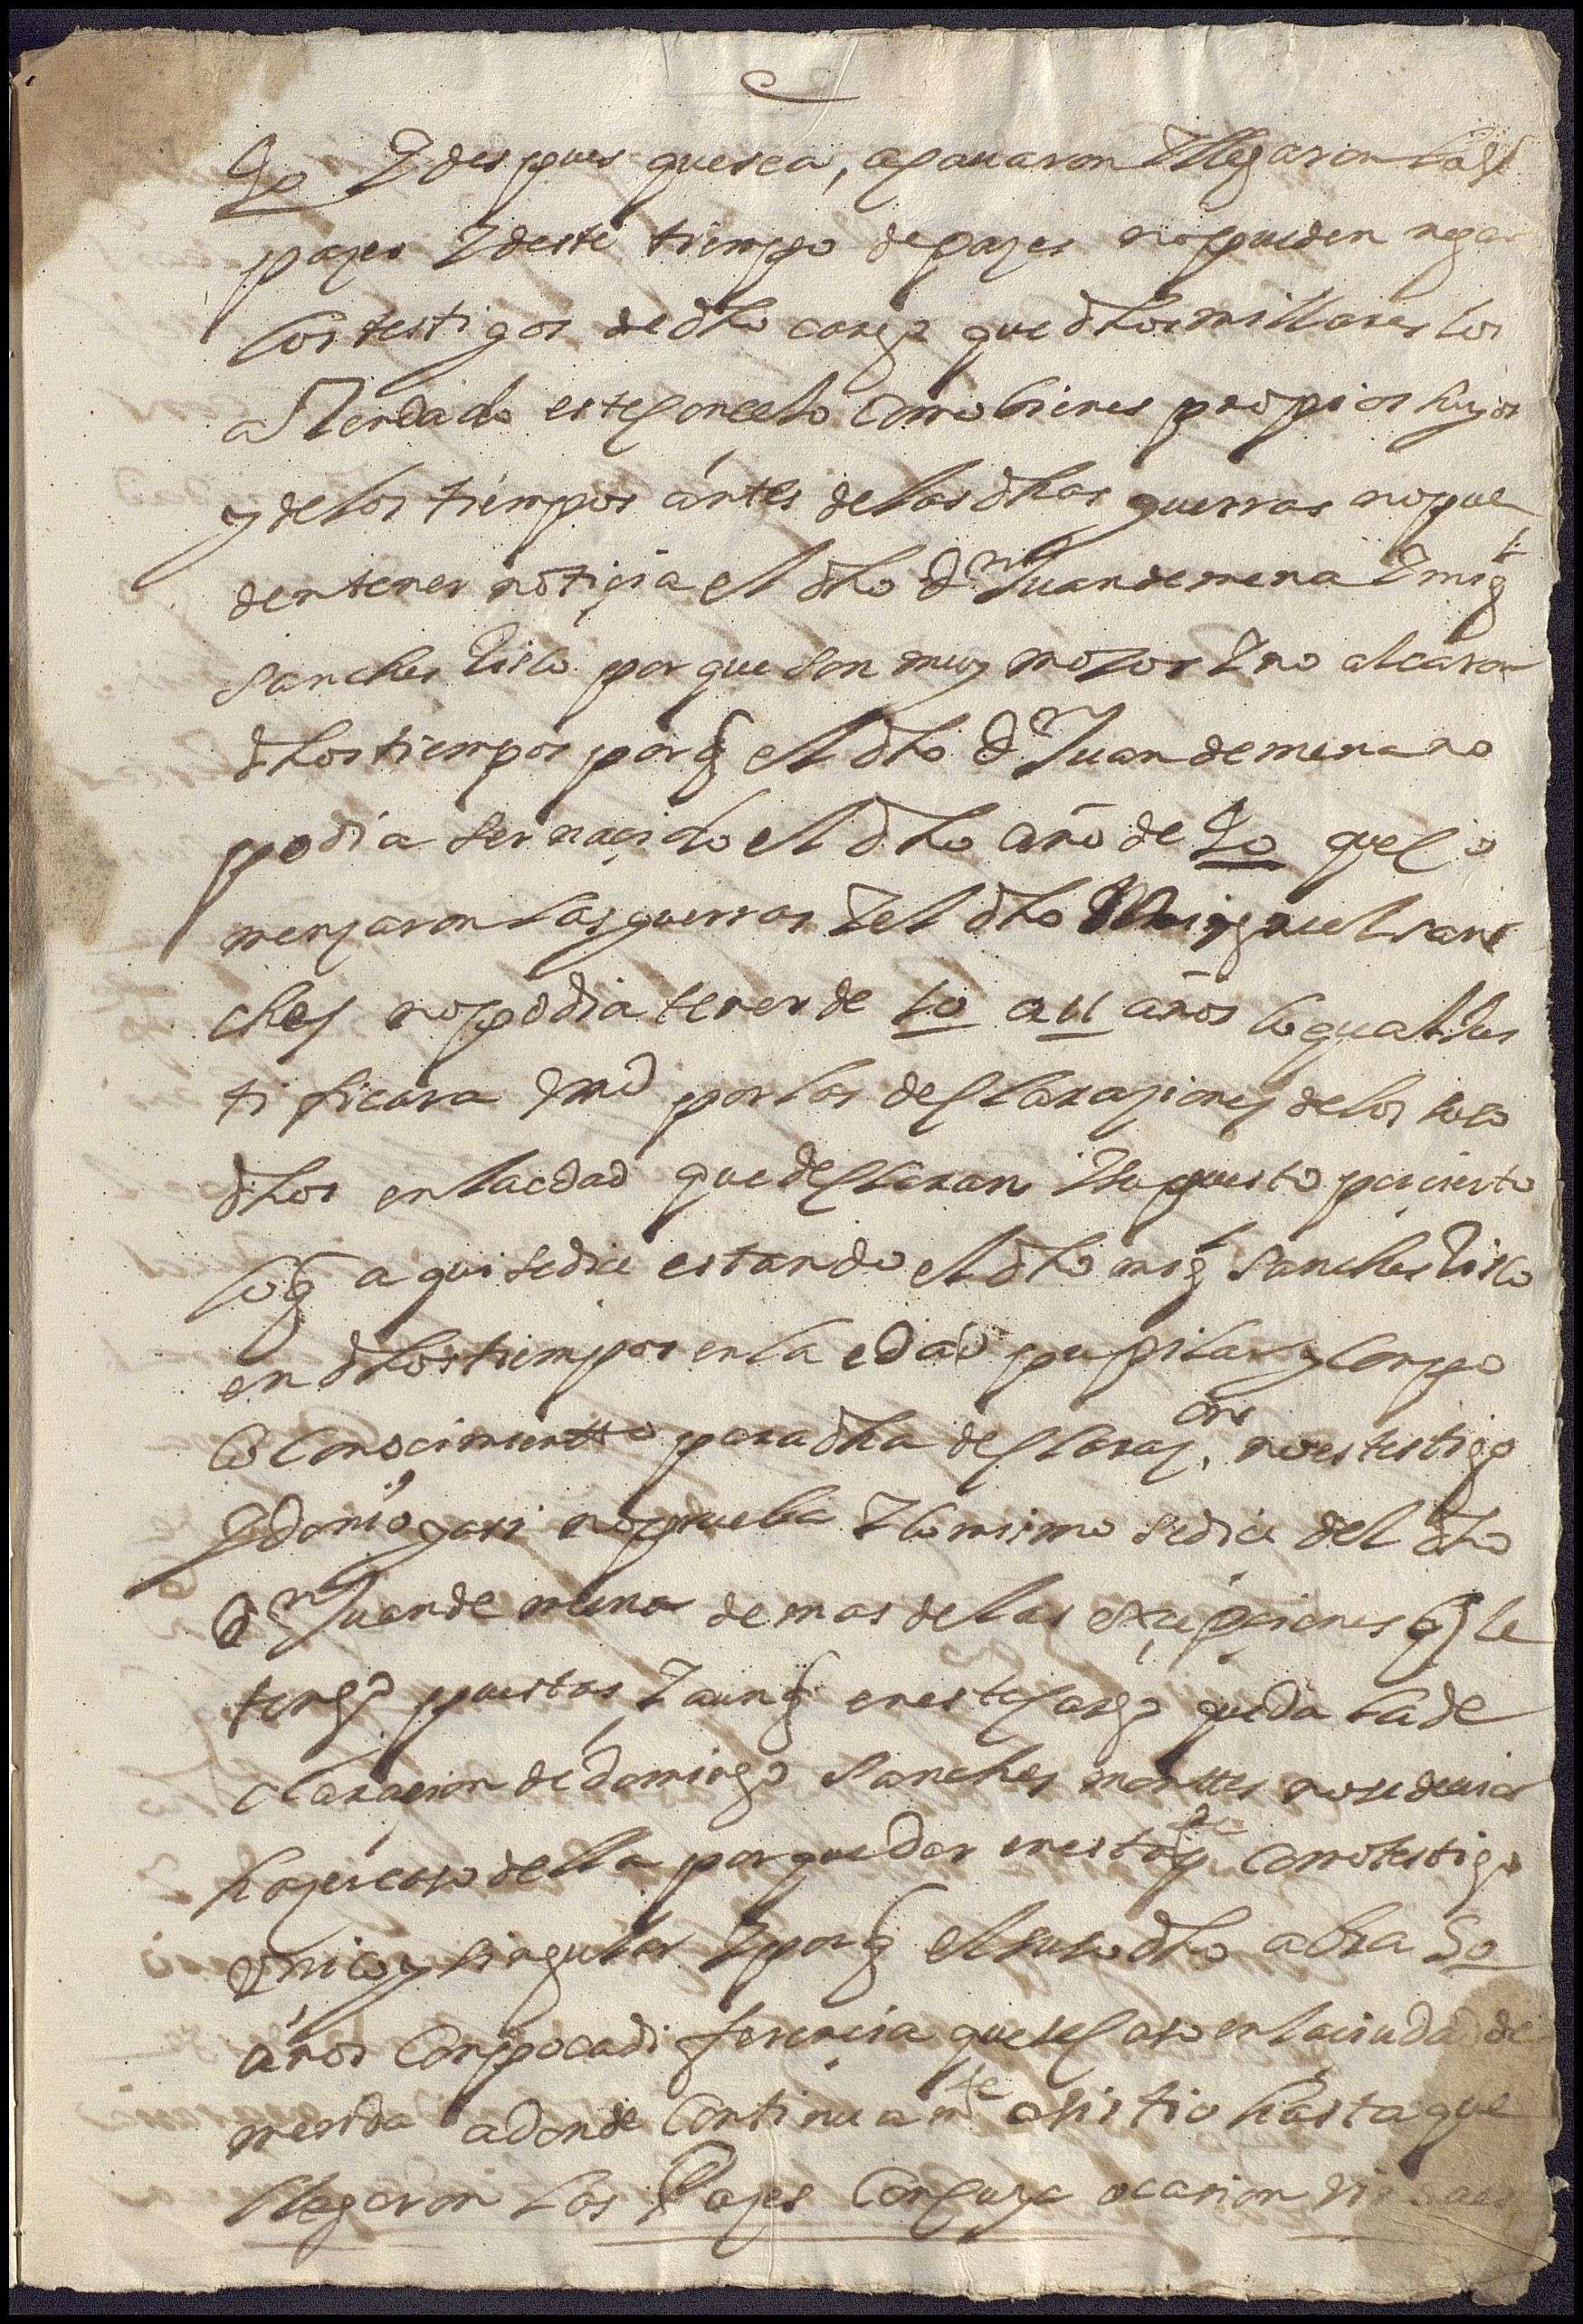 40 Y despues quesea, acauaron Y llegaron las
pazes Y deste tiempo de pazes no pueden negar
los testigos de dho cargo que dhos millares los
a Rendado este Conceto Como bienes propios suyos
y de los tiempos antes de las dhas guerras no pue
den tener notiçia el dho Dn Juan de mena Y migl
sanches Tisco por que son muy mozos Y no alcāsaron
dhos tiempos porq el dho Dn Juan de mena no
podia ser naçido el dho año de 40 que Co
mensaron las guerras Y el dho Miguel san
ches no podia tener de 10 a 11 años lo qual Jus
tificara Vmd por las declaraziones de los suso
dhos en la edad que declaran Y supuesto por cierto
loq aqui se dice estando el dho migl sanches Tisco
en dhos tiempos en la edad pupilar y Con po
Co Conocimientto para dha declaraçon no es testigo
Ydonio y asi no prueba Y lo mismo se dice del dho
Dn Juan de mena de mas de las exçepçiones q le
tengo puestas Y aunq en este Cargo queda la de
claracion de domingo sanches monttes no se deuia
hazer caso della por quedar en esta pte Como testigo
vnico y singular Y porq el suso dho abra 50
años Con poca diferencia que se Caso en la ciudad de
merida a donde Continuamte asistio hasta que
llegaron las Pazes Con Cuya ocasion